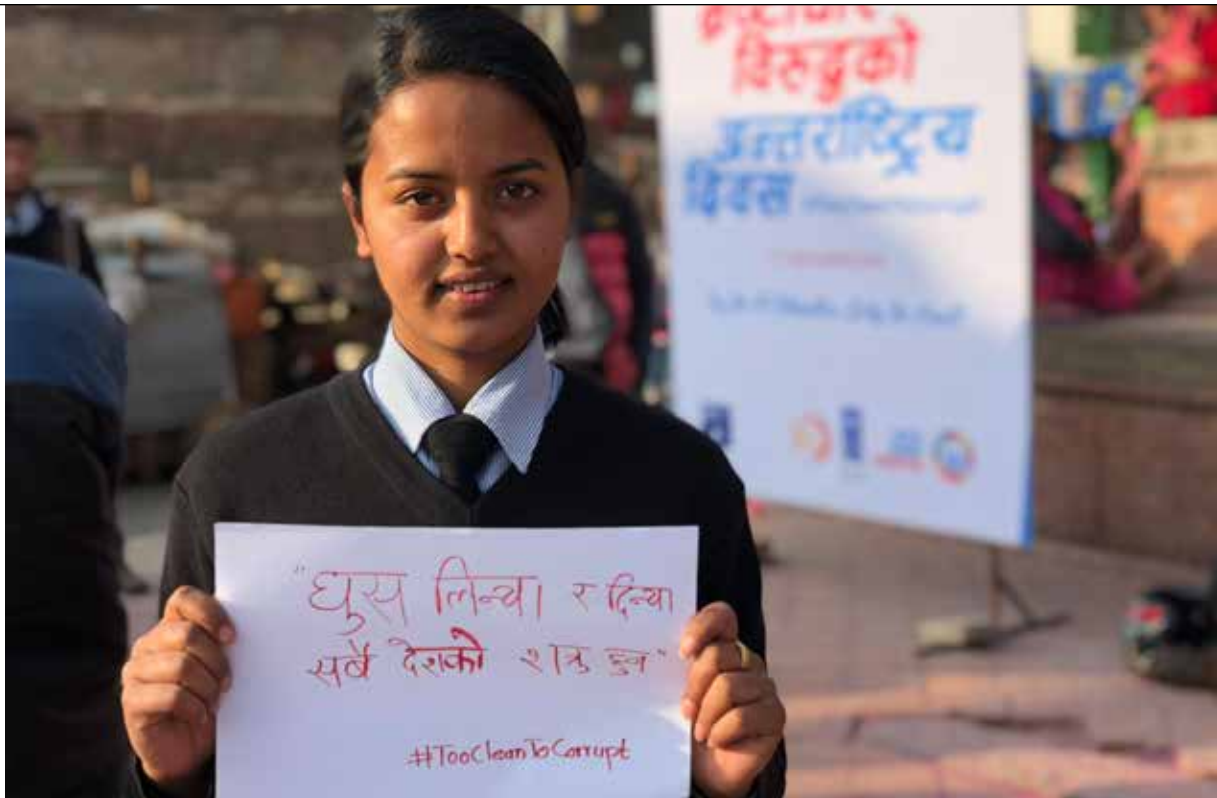 विरुद्धको
अन्तर्राष्ट्रिय
दिवस
"घुस लिन्या र दिन्या
सबै देशको शत्रु हुन"
#TooCleanToCorrupt